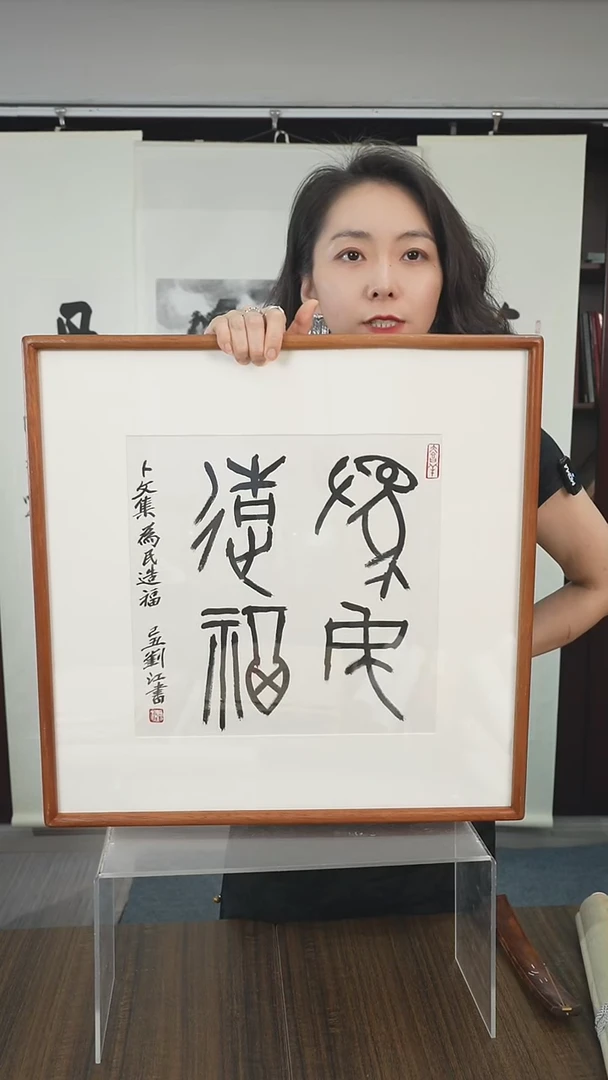 為民
造福
卜文集為民造福 己丑劉江書